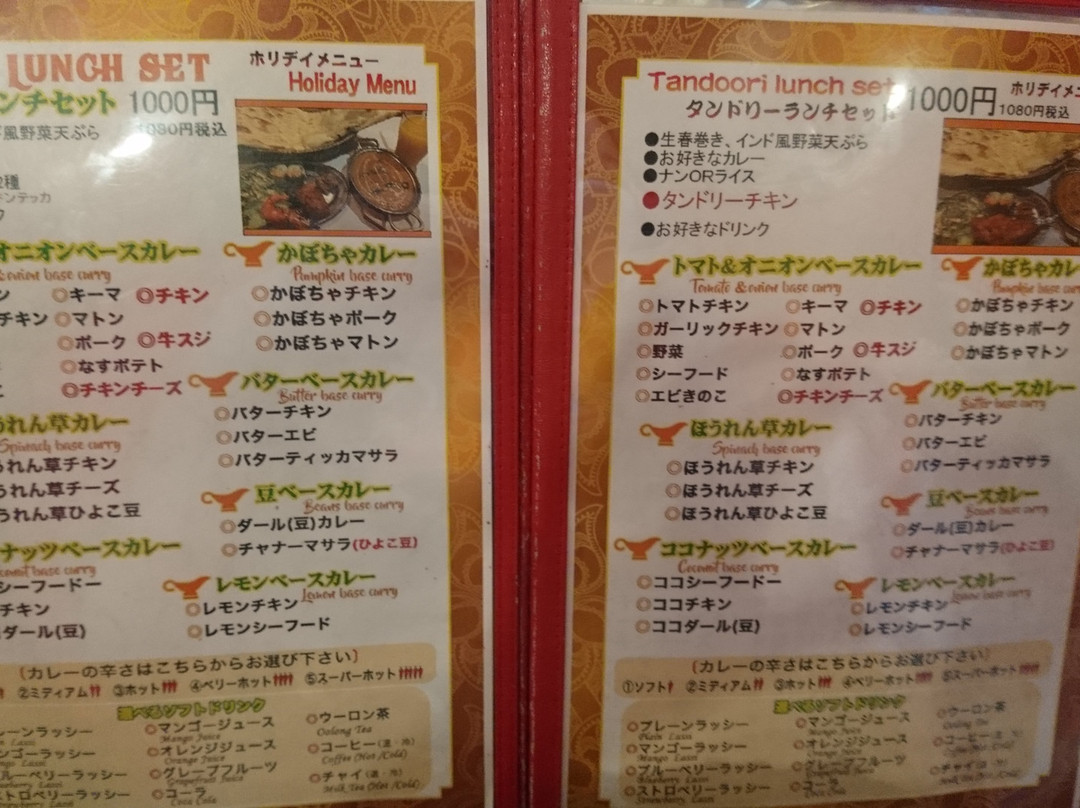 LUNCH SET
ホリデイメニュー
Holiday Menu
ンチセット 1000円
1080円税込
風野菜天ぷら
種
キンテッカ
オニオンベースカレー
onion base curry
キーマ ◎チキン
チキン ◎マトン
◎ポーク ◎牛スジ
◎なすポテト
◎チキンチーズ
かぼちゃカレー
Pumpkin base curry
◎かぼちゃチキン
◎かぼちゃポーク
◎かぼちゃマトン
バターベースカレー
Butter base curry
◎バターチキン
◎バターエビ
◎バターティッカマサラ
うれん草カレー
Spinach base curry
うれん草チキン
うれん草チーズ
うれん草ひよこ豆
豆ベースカレー
Beans base curry
◎ダール(豆)カレー
◎チャナーマサラ(ひよこ豆)
ナッツベースカレー
Coconut base curry
シーフードー
チキン
ダール(豆)
レモンベースカレー
Lemon base curry
◎レモンチキン
◎レモンシーフード
(カレーの辛さはこちらからお選び下さい)
②ミディアム ③ホット ④ベリーホット ⑤スーパーホット
選べるソフトドリンク
レーンラッシー
Lassi
ンゴーラッシー
Mango Lassi
ルーベリーラッシー
Blueberry Lassi
トロベリーラッシー
◎マンゴージュース
Mango Juice
◎オレンジジュース
Orange Juice
◎グレープフルーツ
Grapefruit Juice
◎コーラ
Coca Cola
◎ウーロン茶
Oolong Tea
◎コーヒー(温・冷)
Coffee (Hot /Cold)
◎チャイ(温・冷)
Milk Tea (Hot /Cold)
Tandoori lunch set
タンドリーランチセット
1000円
ホリデイメニ
1080円税込
●生春巻き、インド風野菜天ぷら
●お好きなカレー
●ナンORライス
●タンドリーチキン
●お好きなドリンク
トマト&オニオンベースカレー
Tomato & onion base curry
◎トマトチキン ◎キーマ ◎チキン
◎ガーリックチキン ◎マトン
◎野菜 ◎ポーク ◎牛スジ
◎シーフード ◎なすポテト
◎エビきのこ ◎チキンチーズ
かぼちゃカレ
Pumpkin base curry
◎かぼちゃチキン
◎かぼちゃポーク
◎かぼちゃマトン
バターベースカレー
Butter base curry
◎バターチキン
◎バターエビ
◎バターティッカマサラ
ほうれん草カレー
Spinach base curry
◎ほうれん草チキン
◎ほうれん草チーズ
◎ほうれん草ひよこ豆
豆ベースカレー
Beans base curry
◎ダール(豆)カレー
◎チャナーマサラ(ひよこ豆)
ココナッツベースカレー
Coconut base curry
◎ココシーフードー
◎ココチキン
◎ココダール(豆)
レモンベースカレー
Lemon base curry
◎レモンチキン
◎レモンシーフード
(カレーの辛さはこちらからお選び下さい)
①ソフト ②ミディアム ③ホット ④ベリーホット ⑤スーパーホット
選べるソフトドリンク
◎プレーンラッシー
Plain Lassi
◎マンゴーラッシー
Mango Lassi
◎ブルーベリーラッシー
Blueberry Lassi
◎ストロベリーラッシー
Strawberry Lassi
◎マンゴージュース
Mango Juice
◎オレンジジュース
Orange Juice
◎グレープフルーツ
Grapefruit Juice
◎コーラ
Coca Cola
◎ウーロン茶
Oolong Tea
◎コーヒー(温・冷)
Coffee (Hot /Cold)
◎チャイ(温・冷)
Milk Tea (Hot /Cold)